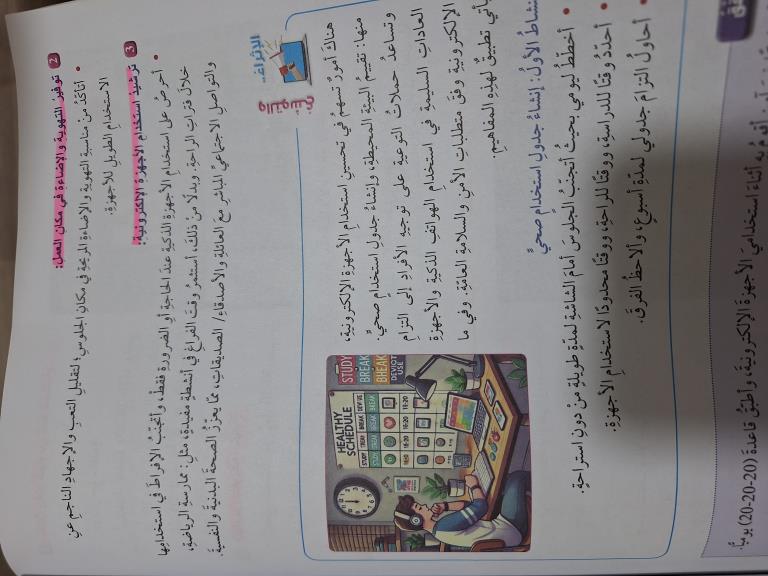 2 توفيرُ التهويةِ والإضاءةِ في مكانِ العملِ:
• أتأكّدُ من مناسبةِ التهويةِ والإضاءةِ المريحةِ في مكانِ الجلوسِ؛ لتقليلِ التعبِ والإجهادِ الناجمِ عنِ
الاستخدامِ الطويلِ للأجهزةِ.
3 ترشيدُ استخدامِ الأجهزةِ الإلكترونيةِ:
• أحرصُ على استخدامِ الأجهزةِ الذكيةِ عندَ الحاجةِ أو الضرورةِ فقطْ، وأتجنّبُ الإفراطَ في استخدامِها
خلالَ فتراتِ الراحةِ. وبدلًا منْ ذلكَ، أستثمرُ وقتَ الفراغِ في أنشطةٍ مفيدةٍ، مثلِ: ممارسةِ الرياضةِ،
والتواصلِ الاجتماعيِّ المباشرِ معَ العائلةِ والأصدقاءِ/ الصديقاتِ، ممّا يعزّزُ الصحةَ البدنيةَ والنفسيةَ.
الإثراء..
هناكَ أمورٌ تُسهمُ في تحسينِ استخدامِ الأجهزةِ الإلكترونيةِ،
منها: تقييمُ البيئةِ المحيطةِ، وإنشاءُ جدولِ استخدامٍ صحيٍّ.
وتساعدُ حملاتُ التوعيةِ على توجيهِ الأفرادِ إلى التزامِ
العاداتِ السليمةِ في استخدامِ الهواتفِ الذكيةِ والأجهزةِ
الإلكترونيةِ وفقَ متطلباتِ الأمنِ والسلامةِ العامّةِ. وفي ما
يأتي تطبيقٌ لهذهِ المفاهيمِ.
HEALTHY
SCHEDULE
STUDY
BREAK
نشاطُ الأولُ: إنشاءُ جدولِ استخدامٍ صحيٍّ
• أخططُ ليومي بحيثُ أتجنبُ الجلوسَ أمامَ الشاشةِ لمدةٍ طويلةٍ منْ دونِ استراحةٍ.
• أحدّدُ وقتًا للدراسةِ، ووقتًا للراحةِ، ووقتًا محدودًا لاستخدامِ الأجهزةِ.
• أحاولُ التزامَ جدولي لمدةِ أسبوعٍ، وألاحظُ الفرقَ.
أقومُ بهِ أثناءَ استخدامي الأجهزةَ الإلكترونيةَ، وأطبّقُ قاعدةَ (20-20-20) يوميًّا.